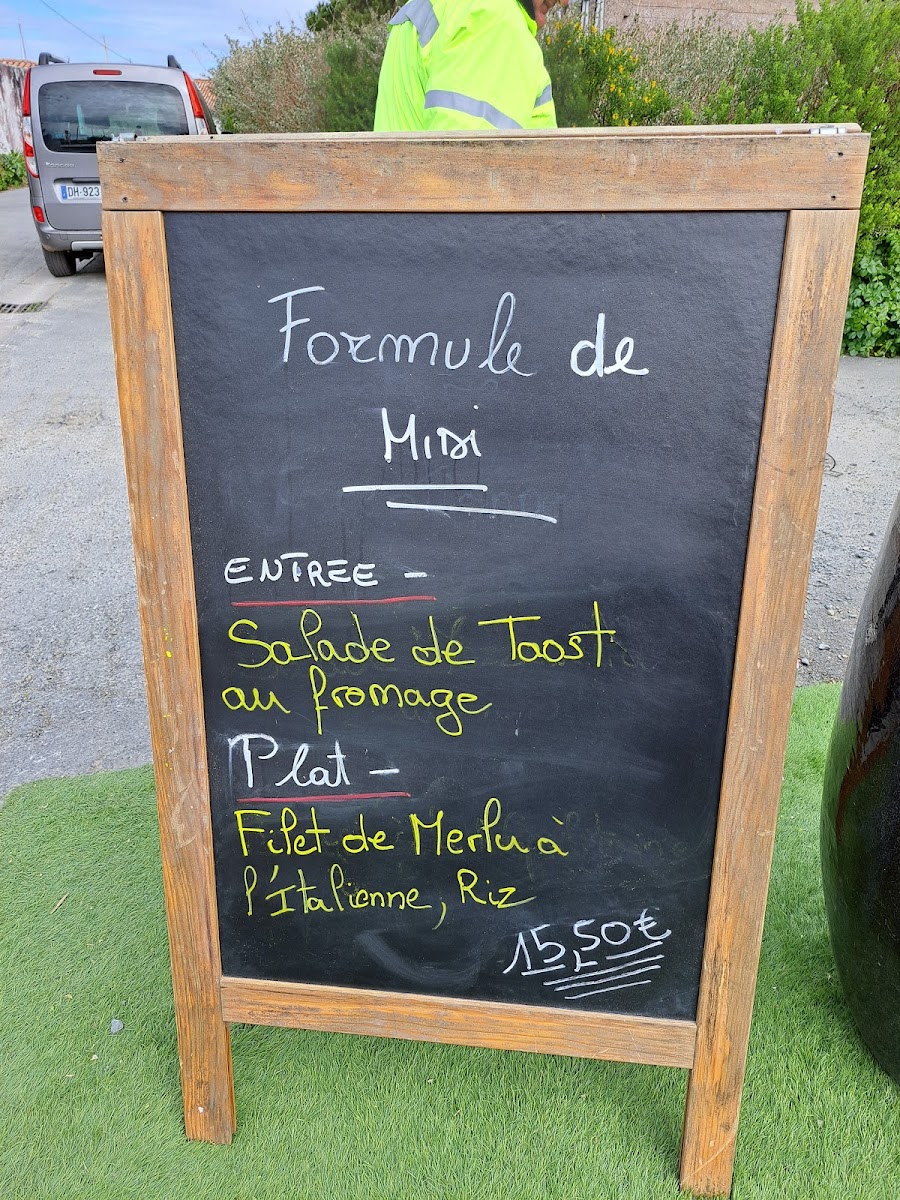 DH-923
Formule de
MIDI
ENTREE -
Salade de Taost
au fromage
Plat -
Filet de Merlu à
l'Italienne, Riz
15,50€